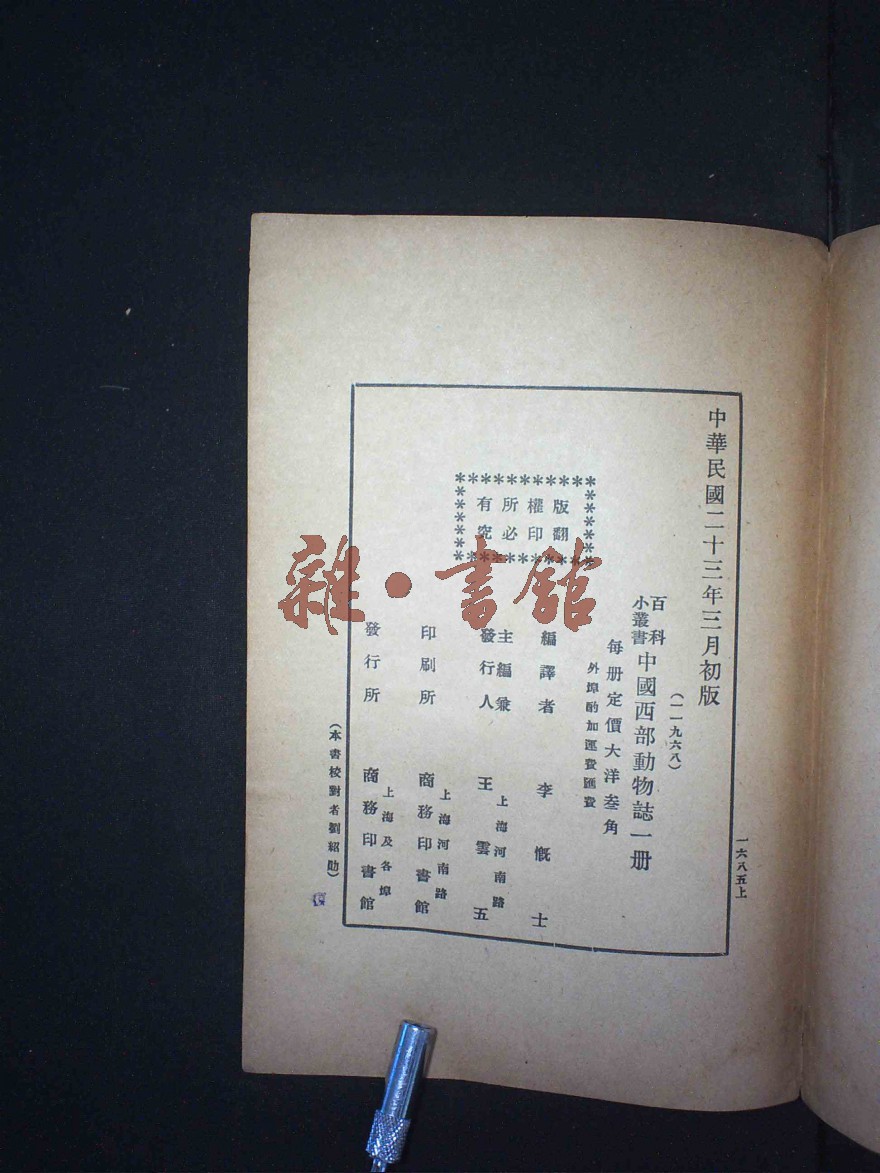 中華民國二十三年三月初版
(一一九六八)
百科
小叢書
中國西部動物誌一册
每册定價大洋叁角
外埠酌加運費匯費
版翻
權印
所必
有究
編譯者 李慨士
主編兼
發行人
上海河南路
王雲五
印刷所
上海河南路
商務印書館
發行所
上海及各埠
商務印書館
(本書校對者劉紹助)
一六八五上
雜·書館